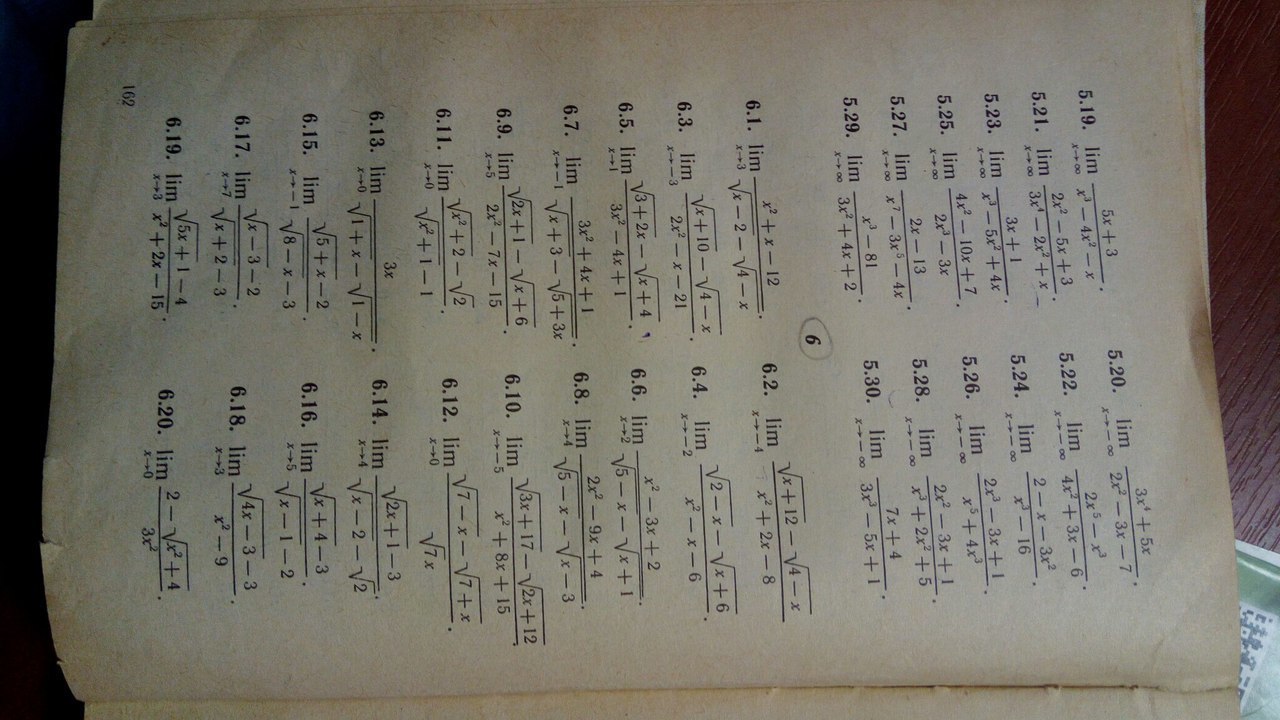 5.19. lim x→∞ (5x + 3)/(x³ − 4x² − x). 5.20. lim x→−∞ (3x⁴ + 5x)/(2x² − 3x − 7).
5.21. lim x→∞ (2x² − 5x + 3)/(3x⁴ − 2x² + x). 5.22. lim x→−∞ (2x⁵ − x³)/(4x² + 3x − 6).
5.23. lim x→∞ (3x + 1)/(x³ − 5x² + 4x). 5.24. lim x→−∞ (2 − x − 3x²)/(x³ − 16).
5.25. lim x→∞ (4x² − 10x + 7)/(2x³ − 3x). 5.26. lim x→−∞ (2x³ − 3x + 1)/(x⁵ + 4x³).
5.27. lim x→∞ (2x − 13)/(x⁷ − 3x⁵ − 4x). 5.28. lim x→−∞ (2x² − 3x + 1)/(x³ + 2x² + 5).
5.29. lim x→∞ (x³ − 81)/(3x² + 4x + 2). 5.30. lim x→−∞ (7x + 4)/(3x³ − 5x + 1).
6
6.1. lim x→3 (x² + x − 12)/(√(x − 2) − √(4 − x)). 6.2. lim x→−4 (√(x + 12) − √(4 − x))/(x² + 2x − 8)
6.3. lim x→−3 (√(x + 10) − √(4 − x))/(2x² − x − 21). 6.4. lim x→−2 (√(2 − x) − √(x + 6))/(x² − x − 6).
6.5. lim x→1 (√(3 + 2x) − √(x + 4))/(3x² − 4x + 1). 6.6. lim x→2 (x² − 3x + 2)/(√(5 − x) − √(x + 1)).
6.7. lim x→−1 (3x² + 4x + 1)/(√(x + 3) − √(5 + 3x)). 6.8. lim x→4 (2x² − 9x + 4)/(√(5 − x) − √(x − 3)).
6.9. lim x→5 (√(2x + 1) − √(x + 6))/(2x² − 7x − 15). 6.10. lim x→−5 (√(3x + 17) − √(2x + 12))/(x² + 8x + 15).
6.11. lim x→0 (√(x² + 2) − √2)/(√(x² + 1) − 1). 6.12. lim x→0 (√(7 − x) − √(7 + x))/(√7x).
6.13. lim x→0 3x/(√(1 + x) − √(1 − x)). 6.14. lim x→4 (√(2x + 1) − 3)/(√(x − 2) − √2).
6.15. lim x→−1 (√(5 + x) − 2)/(√(8 − x) − 3). 6.16. lim x→5 (√(x + 4) − 3)/(√(x − 1) − 2).
6.17. lim x→7 (√(x − 3) − 2)/(√(x + 2) − 3). 6.18. lim x→3 (√(4x − 3) − 3)/(x² − 9).
6.19. lim x→3 (√(5x + 1) − 4)/(x² + 2x − 15). 6.20. lim x→0 (2 − √(x² + 4))/(3x²).
162